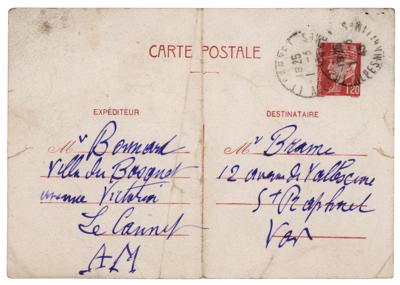 CARTE POSTALE
1,20
EXPÉDITEUR
Mr Bonnard
Villa du Bosquet
avenue Victoria
Le Cannet
AM
DESTINATAIRE
Mr Brame
12 avenue de Valescure
St Raphael
Var